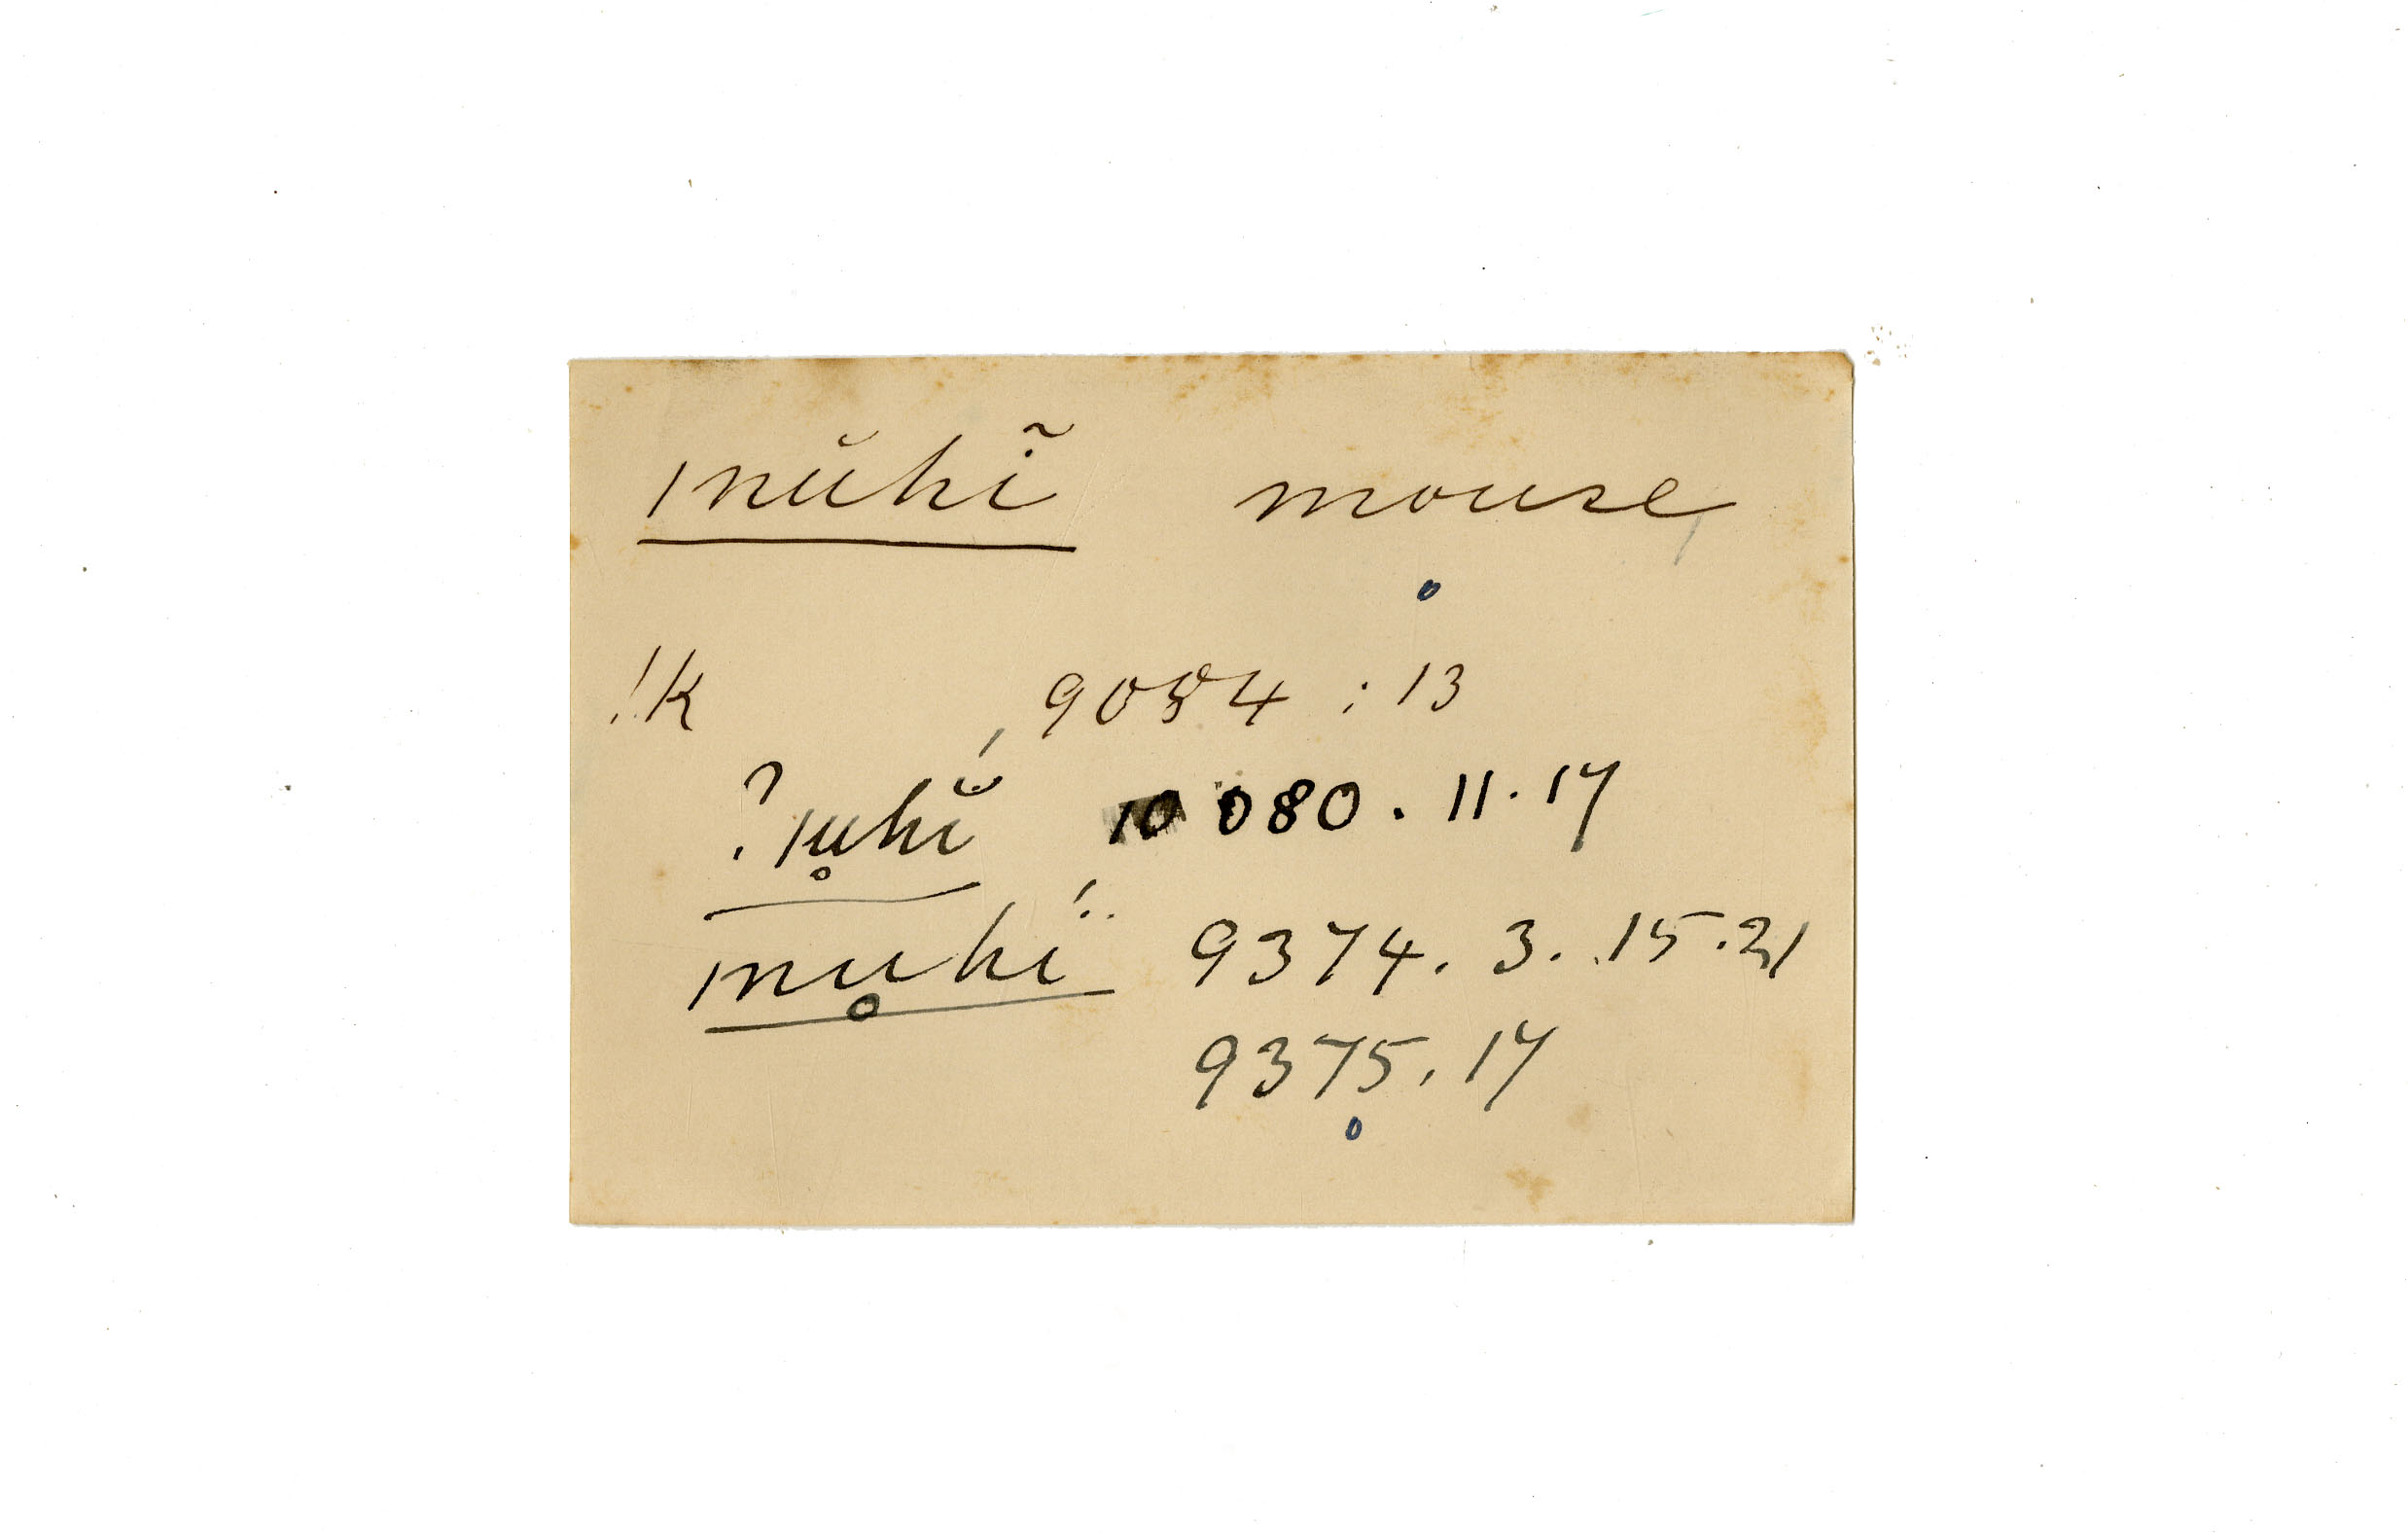 ǀnŭhĩ mouse
!k 9084 : 13
? ǀu̥hĭ́ 10080 . 11 . 17
ǀnu̥hí̈ 9374 . 3 . 15 . 21
9375 . 17